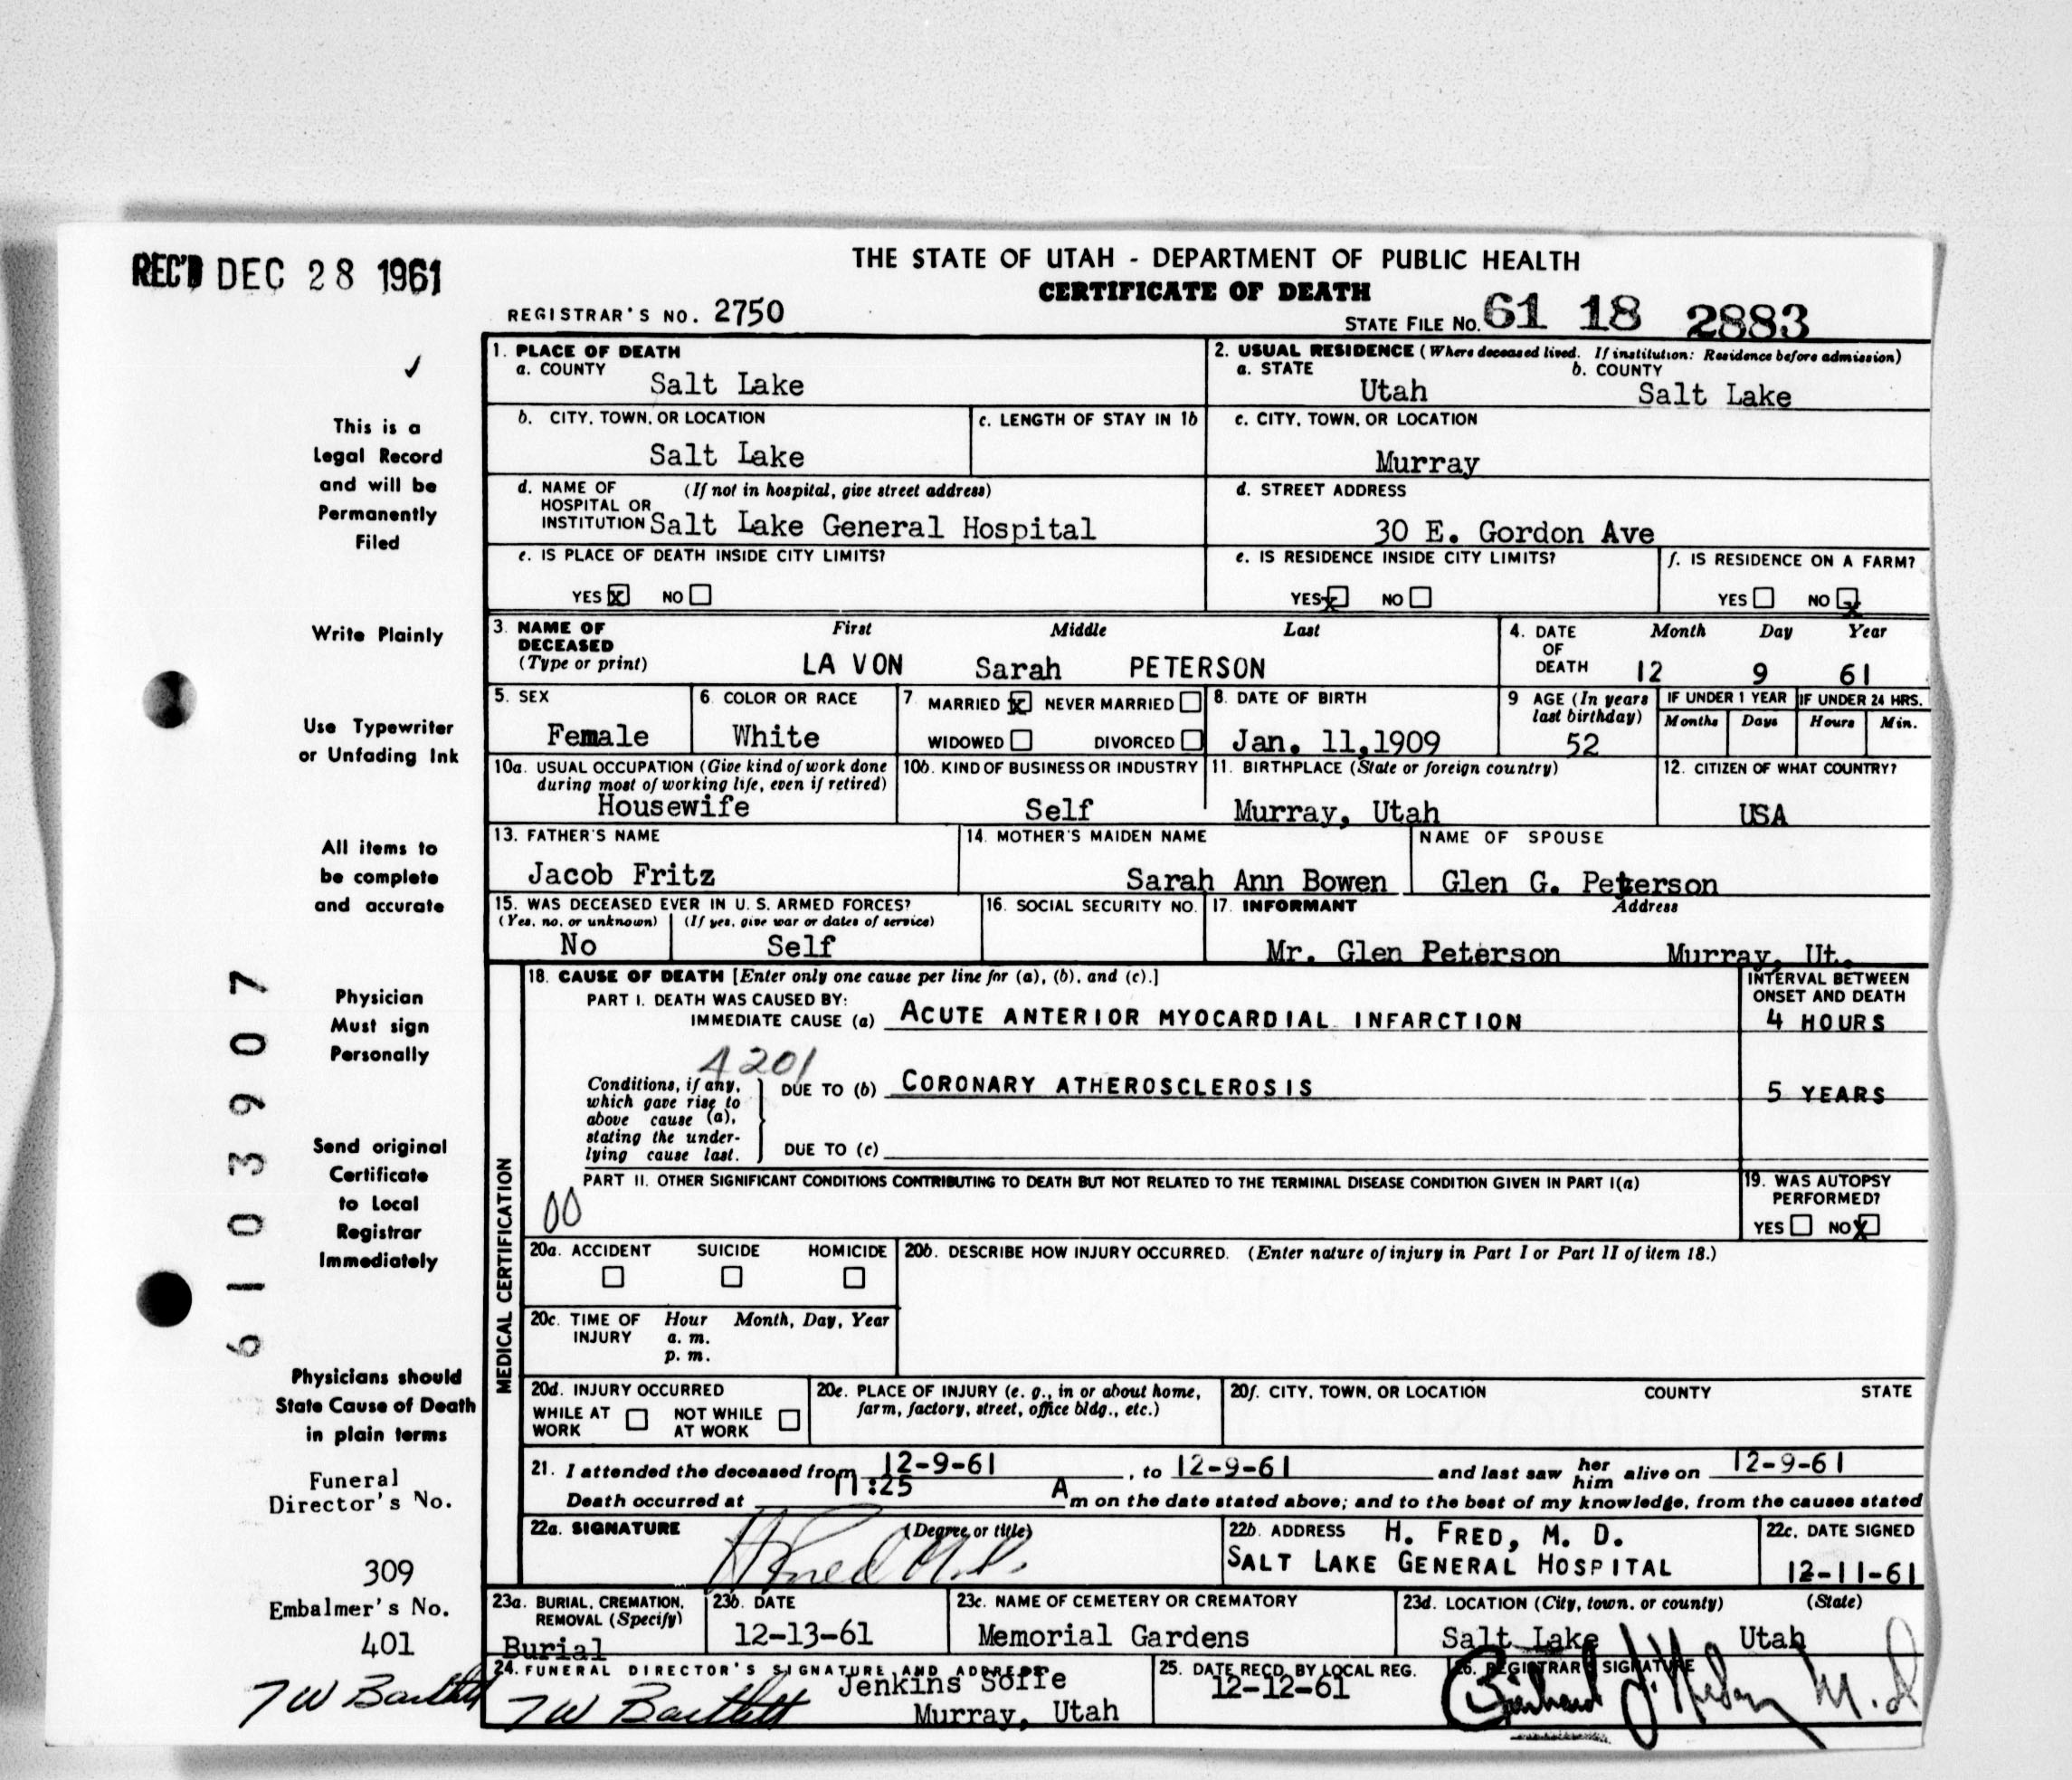 REC'D DEC 28 1961
THE STATE OF UTAH - DEPARTMENT OF PUBLIC HEALTH
CERTIFICATE OF DEATH
REGISTRAR'S NO. 2750
STATE FILE NO. 61 18 2883
This is a
Legal Record
and will be
Permanently
Filed
Write Plainly
Use Typewriter
or Unfading Ink
All items to
be complete
and accurate
Physician
Must sign
Personally
Send original
Certificate
to Local
Registrar
Immediately
Physicians should
State Cause of Death
in plain terms
Funeral
Director's No.
309
Embalmer's No.
401
TW Bartlett
6103907
1. PLACE OF DEATH
a. COUNTY
Salt Lake
2. USUAL RESIDENCE (Where deceased lived. If institution: Residence before admission)
a. STATE b. COUNTY
Utah Salt Lake
b. CITY, TOWN, OR LOCATION
Salt Lake
c. LENGTH OF STAY IN 1b
c. CITY, TOWN, OR LOCATION
Murray
d. NAME OF (If not in hospital, give street address)
HOSPITAL OR
INSTITUTION Salt Lake General Hospital
d. STREET ADDRESS
30 E. Gordon Ave
e. IS PLACE OF DEATH INSIDE CITY LIMITS?
YES X NO
e. IS RESIDENCE INSIDE CITY LIMITS?
YES X NO
f. IS RESIDENCE ON A FARM?
YES NO X
3. NAME OF First Middle Last
DECEASED
(Type or print) LA VON Sarah PETERSON
4. DATE Month Day Year
OF
DEATH 12 9 61
5. SEX
Female
6. COLOR OR RACE
White
7 MARRIED X NEVER MARRIED
WIDOWED DIVORCED
8. DATE OF BIRTH
Jan. 11,1909
9 AGE (In years
last birthday)
52
IF UNDER 1 YEAR
Months Days
IF UNDER 24 HRS.
Hours Min.
10a. USUAL OCCUPATION (Give kind of work done
during most of working life, even if retired)
Housewife
10b. KIND OF BUSINESS OR INDUSTRY
Self
11. BIRTHPLACE (State or foreign country)
Murray, Utah
12. CITIZEN OF WHAT COUNTRY?
USA
13. FATHER'S NAME
Jacob Fritz
14. MOTHER'S MAIDEN NAME
Sarah Ann Bowen
NAME OF SPOUSE
Glen G. Peterson
15. WAS DECEASED EVER IN U. S. ARMED FORCES?
(Yes, no, or unknown) (If yes, give war or dates of service)
No Self
16. SOCIAL SECURITY NO.
17. INFORMANT Address
Mr. Glen Peterson Murray, Ut.
MEDICAL CERTIFICATION
18. CAUSE OF DEATH [Enter only one cause per line for (a), (b), and (c).]
INTERVAL BETWEEN
ONSET AND DEATH
PART I. DEATH WAS CAUSED BY:
IMMEDIATE CAUSE (a) ACUTE ANTERIOR MYOCARDIAL INFARCTION 4 HOURS
4201
Conditions, if any,
which gave rise to
above cause (a),
stating the under-
lying cause last.
DUE TO (b) CORONARY ATHEROSCLEROSIS 5 YEARS
DUE TO (c)
PART II. OTHER SIGNIFICANT CONDITIONS CONTRIBUTING TO DEATH BUT NOT RELATED TO THE TERMINAL DISEASE CONDITION GIVEN IN PART I(a)
00
19. WAS AUTOPSY
PERFORMED?
YES NO X
20a. ACCIDENT SUICIDE HOMICIDE
20b. DESCRIBE HOW INJURY OCCURRED. (Enter nature of injury in Part I or Part II of item 18.)
20c. TIME OF Hour Month, Day, Year
INJURY a. m.
p. m.
20d. INJURY OCCURRED
WHILE AT NOT WHILE
WORK AT WORK
20e. PLACE OF INJURY (e. g., in or about home,
farm, factory, street, office bldg., etc.)
20f. CITY, TOWN, OR LOCATION COUNTY STATE
21. I attended the deceased from 12-9-61, to 12-9-61 and last saw her him alive on 12-9-61
Death occurred at 11:25 A m on the date stated above; and to the best of my knowledge, from the causes stated
22a. SIGNATURE (Degree or title)
H Fred M.D.
22b. ADDRESS H. FRED, M. D.
SALT LAKE GENERAL HOSPITAL
22c. DATE SIGNED
12-11-61
23a. BURIAL, CREMATION,
REMOVAL (Specify)
Burial
23b. DATE
12-13-61
23c. NAME OF CEMETERY OR CREMATORY
Memorial Gardens
23d. LOCATION (City, town, or county) (State)
Salt Lake Utah
24. FUNERAL DIRECTOR'S SIGNATURE AND ADDRESS
Jenkins Soffe
TW Bartlett Murray, Utah
25. DATE RECD. BY LOCAL REG.
12-12-61
26. REGISTRAR'S SIGNATURE
M.D